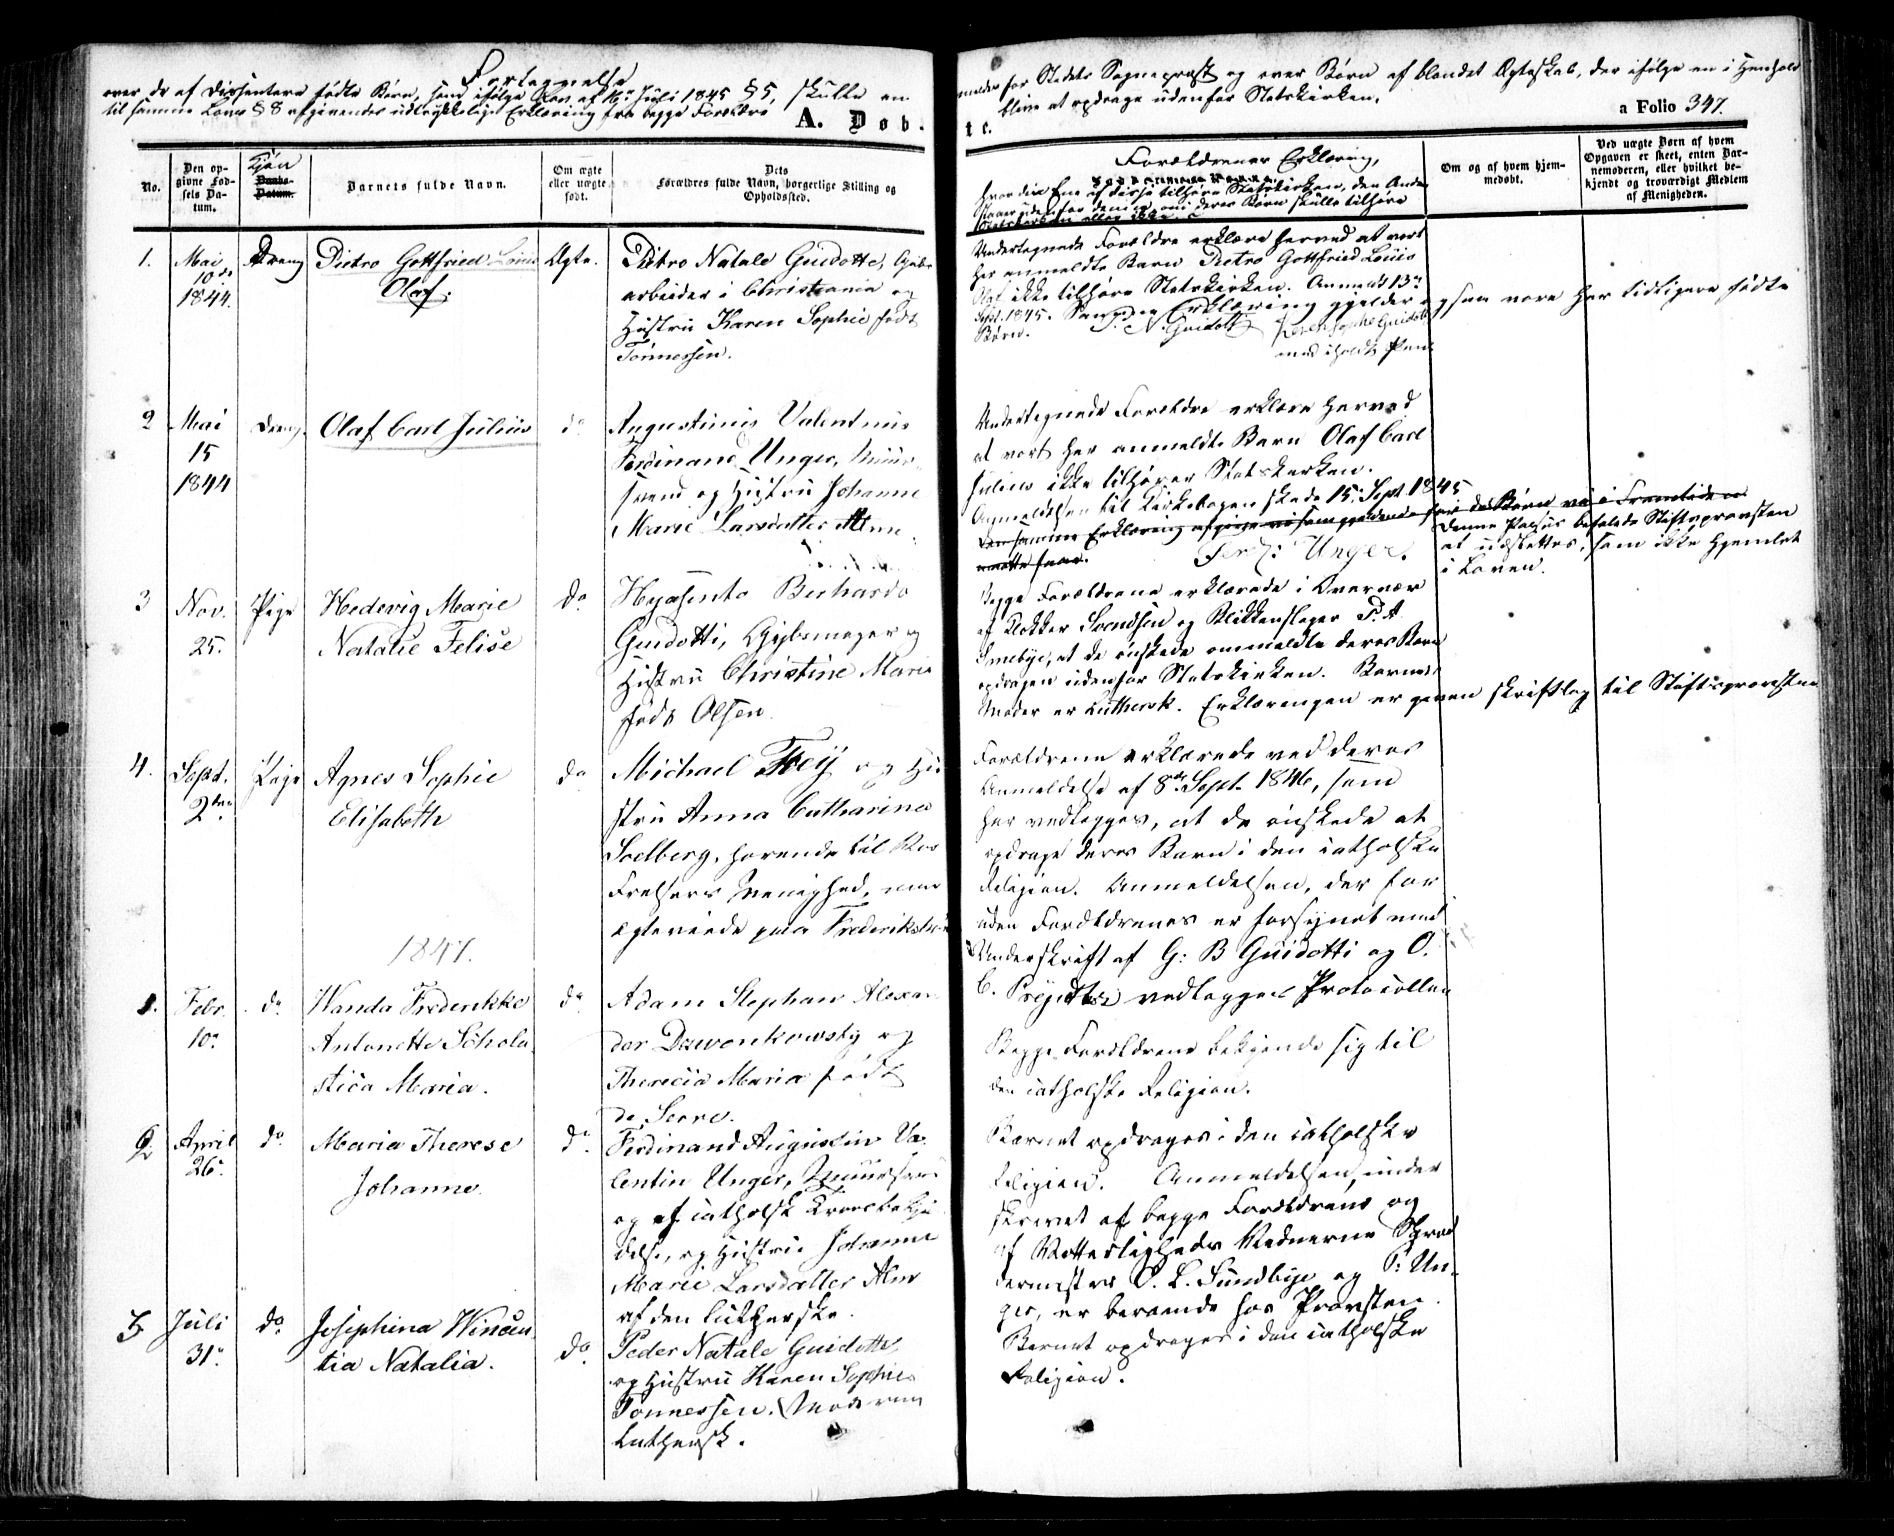 Fortegnelse
over de af Dissentere fødte Børn, som ifølge Lov af 16de Juli 1845 § 5, skulle an
til samme Lovs § 8 afgivende udtrykkelige Erklæring fra begge Forældre
A. Døb.
No.
Den opgivne Fødsels Datum.
Kjøn
Barnets fulde Navn.
Om ægte eller uægte født.
Dets Forældres fulde Navn, borgerlige Stilling og Opholdssted.
1.
Mai
10de
1844.
Dreng
Pietro Gottfried Louis
Olaf.
Ægte.
Pietro Natale Guidotti, Gibs
arbeider i Christiania og
Hustru Karen Sophie født
Tönnessen.
2
Mai
15
1844
Dreng
Olaf Carl Julius
do
Augustinus Valentinus
Ferdinand Unger, Muur-
svend og Hustru Johanne
Marie Larsdatter Alm
3
Nov.
25.
Pige
Hedevig Marie
Natalie Felise
do
Hyasinto Berhardo
Guidotti, Gibsmager og
Hustru Christine Marie
født Olsen.
4.
Sept.
2den
Pige
Agnes Sophie
Elisabeth
do
Michael Frey og Hu
stru Anna Catharina
Soelberg, hørende til Vor
Frelsers Menighed, men
ægteviede paa Frederikst
1847.
1.
Febr.
10.
do
Wanda Frederikke
Antonette Schola
stica Maria.
do
Adam Stephan Alexan
der Dzwonkowsky og
Therecia Maria født
de Serre.
2
April
26.
do
Maria Therese
Johanne
do
Ferdinand Augustin Va
lentin Unger, Muursvend
og af catholsk Troesbekjen
delse, og Hustru Johanne
Marie Larsdatter Alm
af den lutherske.
3
Juli
31.
do
Josephina Wincen
tia Natalia.
do
Peder Natale Guidotti
og Hustru Karen Sophie
Tönnessen. Moderen
Luthersk.
meldes for Stedets Sognepræst og over Børn af blandet Ægteskab, der ifølge en i Henhold
blive at opdrage udenfor Statskirken.
te.
a Folio 347.
Forældrenes Erklæring,
hvor den Ene af disse tilhører Statskirken, den Anden
staaer udenfor denne, om deres Børn skulle tilhøre
Statskirken eller ikke
Om og af hvem hjemmedøbt.
Ved uægte Børn af hvem Opgaven er skeet, enten Barnemoderen, eller hvilket bekjendt og troværdigt Medlem af Menigheden.
Undertegnede Forældre erklære herved at vort
her anmeldte Barn Pietro Gottfried Louis
Olaf ikke tilhøre Statskirken. Anmeldt 13de
Sept. 1845. Samme Erklæring gjelder ogsaa vore her tidligere fødte
Børn. N. Guidotti Karen Sophe Guidotti
med iholdt Pen
Undertegnede Forældre erklære herved
at vort her anmeldte Barn Olaf Carl
Julius ikke tilhører Statskirken.
Anmeldelsen til Kirkebogen skede 15. Sept 1845
Den samme Erklæring afgive vi som gjældende for de Børn vi i Fremtiden
maatte faae. Ferd: Unger.
Denne Passus befalede Stiftsprovsten
at udslettes, som ikke hjemlet
i Loven.
Begge Forældrene erklærede i Overvær
af Klokker Svendsen og Blikkenslager P. A.
Smebye, at de ønskede anmeldte deres Barn
opdragen udenfor Statskirken. Barnets
Moder er Luthersk. Erklæringen er given skriftlig til Stiftsprovsten
Forældrene erklærede ved deres
Anmeldelse af 8de Sept. 1846, som
her vedlægges, at de ønskede at
opdrage deres Barn i den catholske
Religion. Anmeldelsen, der for
uden Forældrenes er forsynet med
Underskrift af G: B Guidotti og O.
C. vedlægges Protocollen
Begge Forældrene bekjende sig til
den catholske Religion.
Barnet opdrages i den catholske
Religion. Anmeldelsen, under
skrevet af begge Forældrene og
af Vitterligheds Vidnerne
O. L. Sundbye og P: Un-
ger, er beroende hos Provsten.
Barnet opdrages i den catholske
Religion.